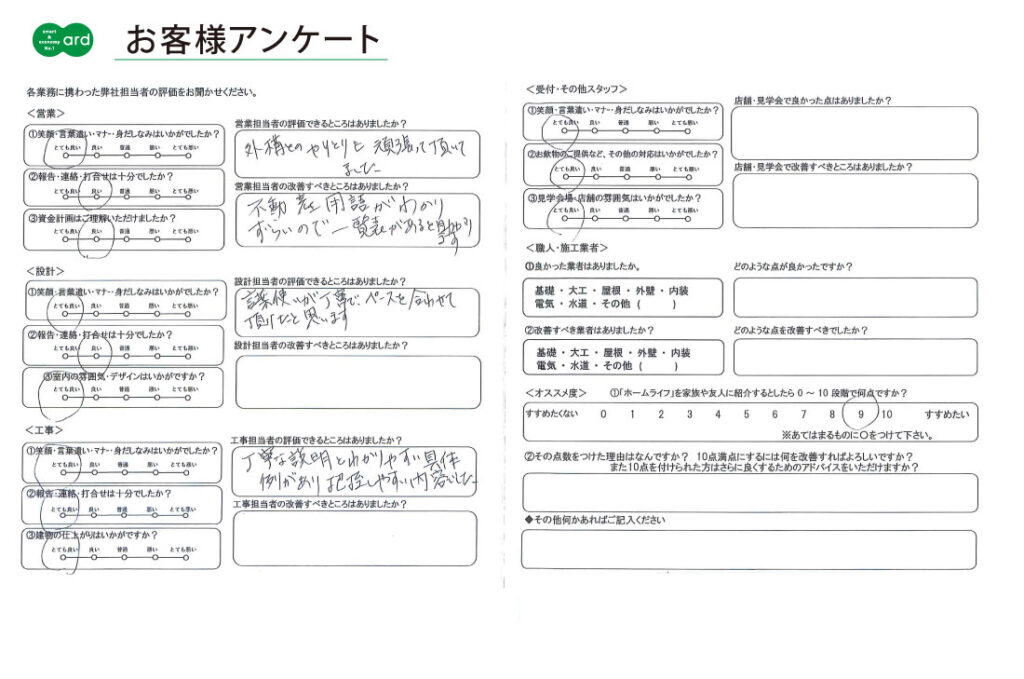 smart
&
economy
No.1
ard
お客様アンケート
各業務に携わった弊社担当者の評価をお聞かせください。
＜営業＞
①笑顔・言葉遣い・マナー・身だしなみはいかがでしたか？
とても良い 良い 普通 悪い とても悪い
②報告・連絡・打合せは十分でしたか？
とても良い 良い 普通 悪い とても悪い
③資金計画はご理解いただけましたか？
とても良い 良い 普通 悪い とても悪い
営業担当者の評価できるところはありましたか？
外構とのやりとりを頑張って頂いて
ました
営業担当者の改善すべきところはありましたか？
不動産用語がわかり
ずらいので一覧表があると助かり
ます
＜設計＞
①笑顔・言葉遣い・マナー・身だしなみはいかがでしたか？
とても良い 良い 普通 悪い とても悪い
②報告・連絡・打合せは十分でしたか？
とても良い 良い 普通 悪い とても悪い
③室内の雰囲気・デザインはいかがですか？
とても良い 良い 普通 悪い とても悪い
設計担当者の評価できるところはありましたか？
言葉使いが丁寧でペースを合わせて
頂けたと思います
設計担当者の改善すべきところはありましたか？
＜工事＞
①笑顔・言葉遣い・マナー・身だしなみはいかがでしたか？
とても良い 良い 普通 悪い とても悪い
②報告・連絡・打合せは十分でしたか？
とても良い 良い 普通 悪い とても悪い
③建物の仕上がりはいかがですか？
とても良い 良い 普通 悪い とても悪い
工事担当者の評価できるところはありましたか？
丁寧な説明とわかりやすい具体
例があり把握しやすい内容でした
工事担当者の改善すべきところはありましたか？
＜受付・その他スタッフ＞
①笑顔・言葉遣い・マナー・身だしなみはいかがでしたか？
とても良い 良い 普通 悪い とても悪い
②お飲物のご提供など、その他の対応はいかがでしたか？
とても良い 良い 普通 悪い とても悪い
③見学会場・店舗の雰囲気はいかがでしたか？
とても良い 良い 普通 悪い とても悪い
店舗・見学会で良かった点はありましたか？
店舗・見学会で改善すべきところはありましたか？
＜職人・施工業者＞
①良かった業者はありましたか。
基礎 ・ 大工 ・ 屋根 ・ 外壁 ・ 内装
電気 ・ 水道 ・ その他 （ ）
どのような点が良かったですか？
②改善すべき業者はありましたか？
基礎 ・ 大工 ・ 屋根 ・ 外壁 ・ 内装
電気 ・ 水道 ・ その他 （ ）
どのような点を改善すべきでしたか？
＜オススメ度＞ ①「ホームライフ」を家族や友人に紹介するとしたら 0 ～ 10 段階で何点ですか？
すすめたくない 0 1 2 3 4 5 6 7 8 9 10 すすめたい
※あてはまるものに〇をつけて下さい。
②その点数をつけた理由はなんですか？ 10点満点にするには何を改善すればよろしいですか？
また10点を付けられた方はさらに良くするためのアドバイスをいただけますか？
◆その他何かあればご記入ください